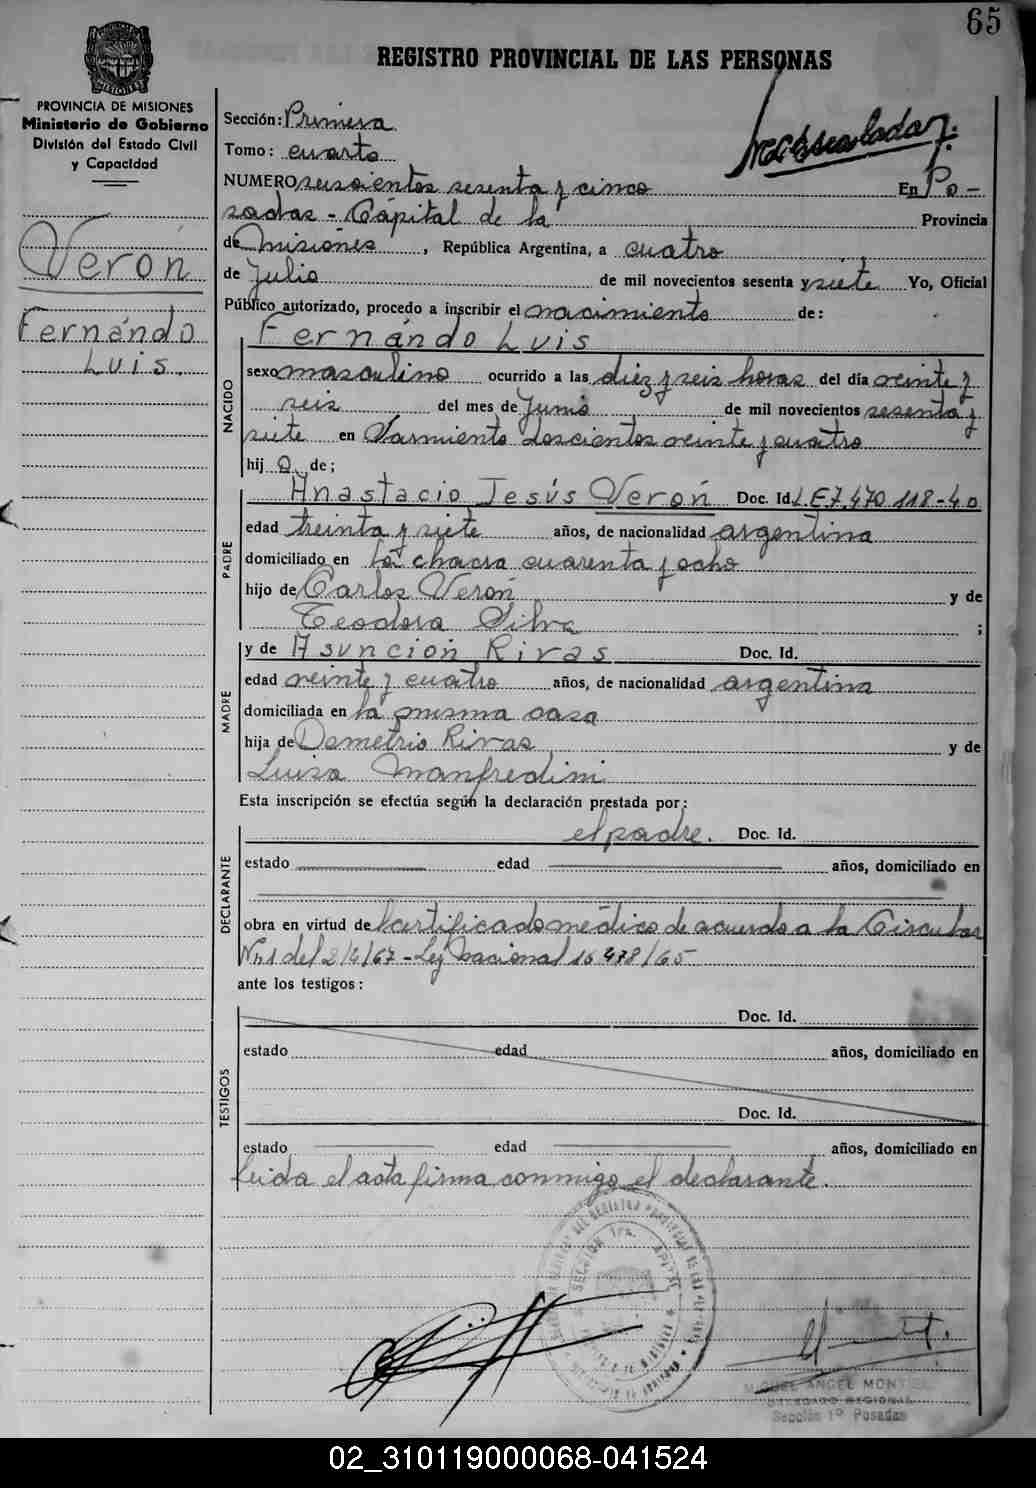 65
REGISTRO PROVINCIAL DE LAS PERSONAS
PROVINCIA DE MISIONES
Ministerio de Gobierno
División del Estado Civil
y Capacidad
Verón
Fernándo
Luis.
Sección: Primera
Tomo: cuarto
NUMERO seiscientos sesenta y cinco En Po-
sadas - Cápital de la Provincia
de Misiónes, República Argentina, a cuatro
de Julio de mil novecientos sesenta y siete Yo, Oficial
Público autorizado, procedo a inscribir el nacimiento de:
NACIDO
Fernándo Luis
sexo masculino ocurrido a las diez y seis horas del día veinte y
seis del mes de Junio de mil novecientos sesenta y
siete en Sarmiento doscientos veinte y cuatro
hij o de;
PADRE
Anastacio Jesús Verón Doc. Id. L.E 7.470 118-40
edad treinta y siete años, de nacionalidad argentina
domiciliado en la chacra cuarenta y ocho
hijo de Carlos Verón y de
Teodora Silva ;
MADRE
y de Asunción Rivas Doc. Id.
edad veinte y cuatro años, de nacionalidad argentina
domiciliada en la misma casa
hija de Demetrio Rivas y de
Luisa Manfredini
Esta inscripción se efectúa según la declaración prestada por:
DECLARANTE
el padre. Doc. Id.
estado edad años, domiciliado en
obra en virtud de certificado médico de acuerdo a la Circular
Nº1 del 2/4/67 - Ley Nacional 16 478/65
ante los testigos:
TESTIGOS
Doc. Id.
estado edad años, domiciliado en
Doc. Id.
estado edad años, domiciliado en
Leida el acta firma conmigo el declarante.
SECCION 1ra.
MIGUEL ANGEL MONTIEL
DELEGADO REGIONAL
Sección 1º Posadas
02_310119000068-041524